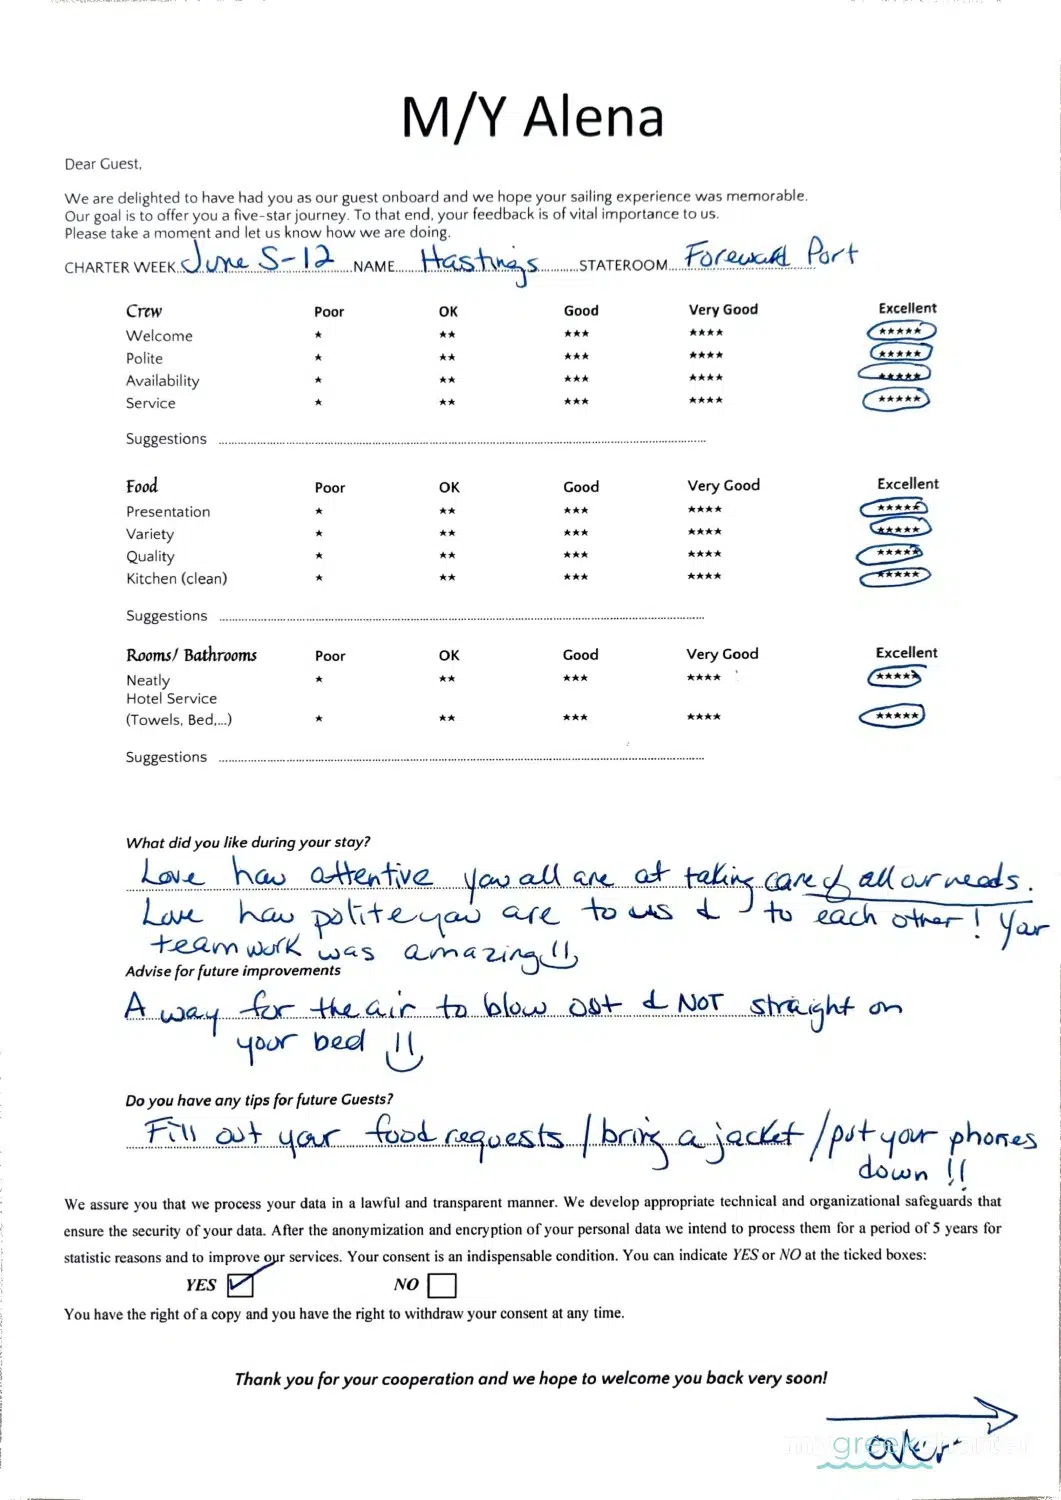 M/Y Alena
Dear Guest,
We are delighted to have had you as our guest onboard and we hope your sailing experience was memorable.
Our goal is to offer you a five-star journey. To that end, your feedback is of vital importance to us.
Please take a moment and let us know how we are doing.
CHARTER WEEK June 5-12 NAME Hastings STATEROOM Foreward Port
Crew Poor OK Good Very Good Excellent
Welcome * ** *** **** *****
Polite * ** *** **** *****
Availability * ** *** **** *****
Service * ** *** **** *****
Suggestions
Food Poor OK Good Very Good Excellent
Presentation * ** *** **** *****
Variety * ** *** **** *****
Quality * ** *** **** *****
Kitchen (clean) * ** *** **** *****
Suggestions
Rooms/ Bathrooms Poor OK Good Very Good Excellent
Neatly * ** *** **** *****
Hotel Service
(Towels, Bed,...) * ** *** **** *****
Suggestions
What did you like during your stay?
Love how attentive you all are at taking care of all our needs.
Love how polite you are to us & to each other! Your
teamwork was amazing!!
Advise for future improvements
A way for the air to blow out & NOT straight on
your bed !!
Do you have any tips for future Guests?
Fill out your food requests / bring a jacket / put your phones
down !!
We assure you that we process your data in a lawful and transparent manner. We develop appropriate technical and organizational safeguards that
ensure the security of your data. After the anonymization and encryption of your personal data we intend to process them for a period of 5 years for
statistic reasons and to improve our services. Your consent is an indispensable condition. You can indicate YES or NO at the ticked boxes:
YES NO
You have the right of a copy and you have the right to withdraw your consent at any time.
Thank you for your cooperation and we hope to welcome you back very soon!
over
my greek charter